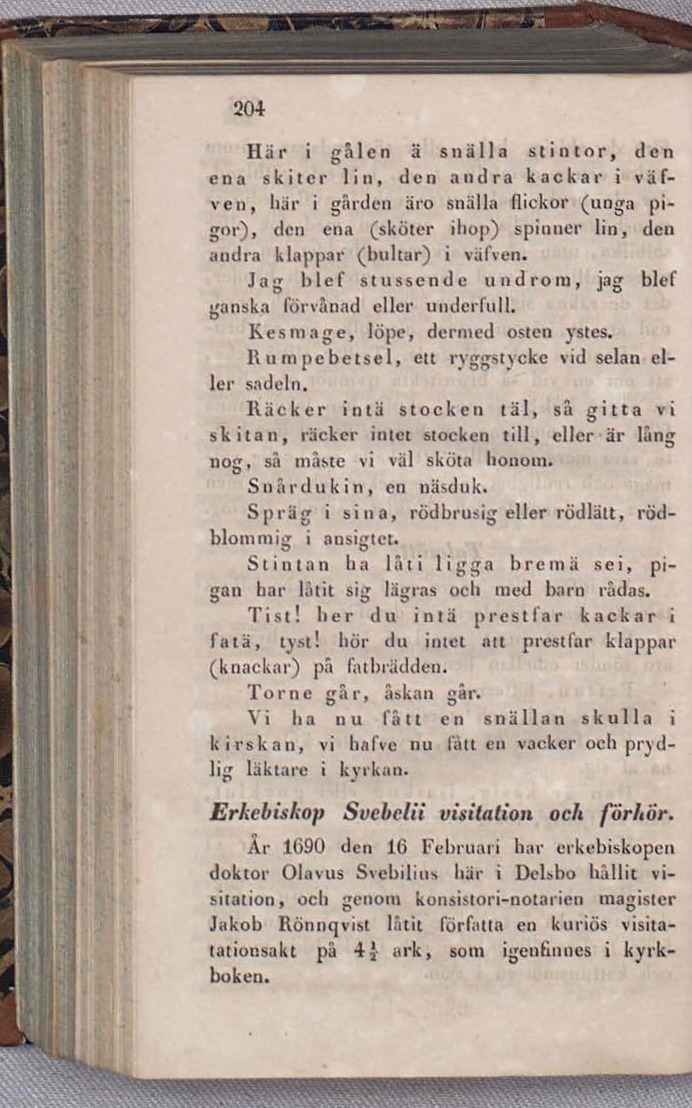 204
Här i gålen ä snälla stintor, den
ena skiter lin, den andra kackar i väf-
ven, här i gården äro snälla flickor (unga pi-
gor), den ena (sköter ihop) spinner lin, den
andra klappar (bultar) i väfven.
Jag blef stussende undrom, jag blef
ganska förvånad eller underfull.
Kesmage, löpe, dermed osten ystes.
Rumpebetsel, ett ryggstycke vid selan el-
ler sadeln.
Räcker intä stocken täl, så gitta vi
skitan, räcker intet stocken till, eller är lång
nog, så måste vi väl sköta honom.
Snårdukin, en näsduk.
Språg i sina, rödbrusig eller rödlätt, röd-
blommig i ansigtet.
Stintan ha låti ligga bremä sei, pi-
gan har låtit sig lägras och med barn rådas.
Tist! her du intä prestfar kackar i
fatä, tyst! hör du intet att prestfar klappar
(knackar) på fatbrädden.
Torne går, åskan går.
Vi ha nu fått en snällan skulla i
kirskan, vi hafve nu fått en vacker och pryd-
lig läktare i kyrkan.
Erkebiskop Svebelii visitation och förhör.
År 1690 den 16 Februari har erkebiskopen
doktor Olavus Svebilius här i Delsbo hållit vi-
sitation, och genom konsistori-notarien magister
Jakob Rönnqvist låtit författa en kuriös visita-
tationsakt på 4½ ark, som igenfinnes i kyrk-
boken.